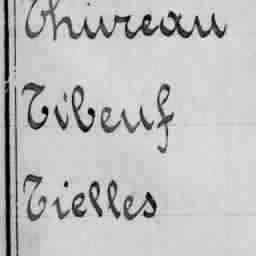 Thureau
Tibeuf
Tielles